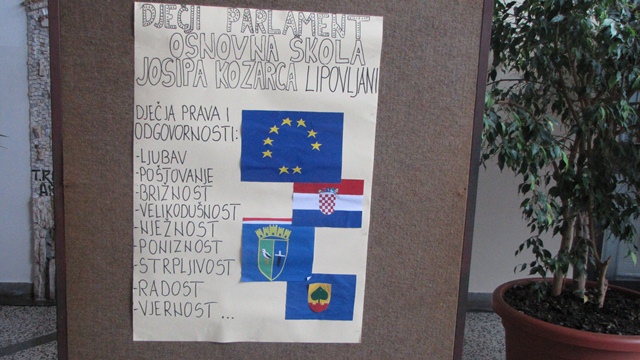 DJEČJI PARLAMENT
OSNOVNA ŠKOLA
JOSIPA KOZARCA LIPOVLJANI
DJEČJA PRAVA I
ODGOVORNOSTI:
-LJUBAV
-POŠTOVANJE
-BRIŽNOST
-VELIKODUŠNOST
-NJEŽNOST
-PONIZNOST
-STRPLJIVOST
-RADOST
-VJERNOST ...